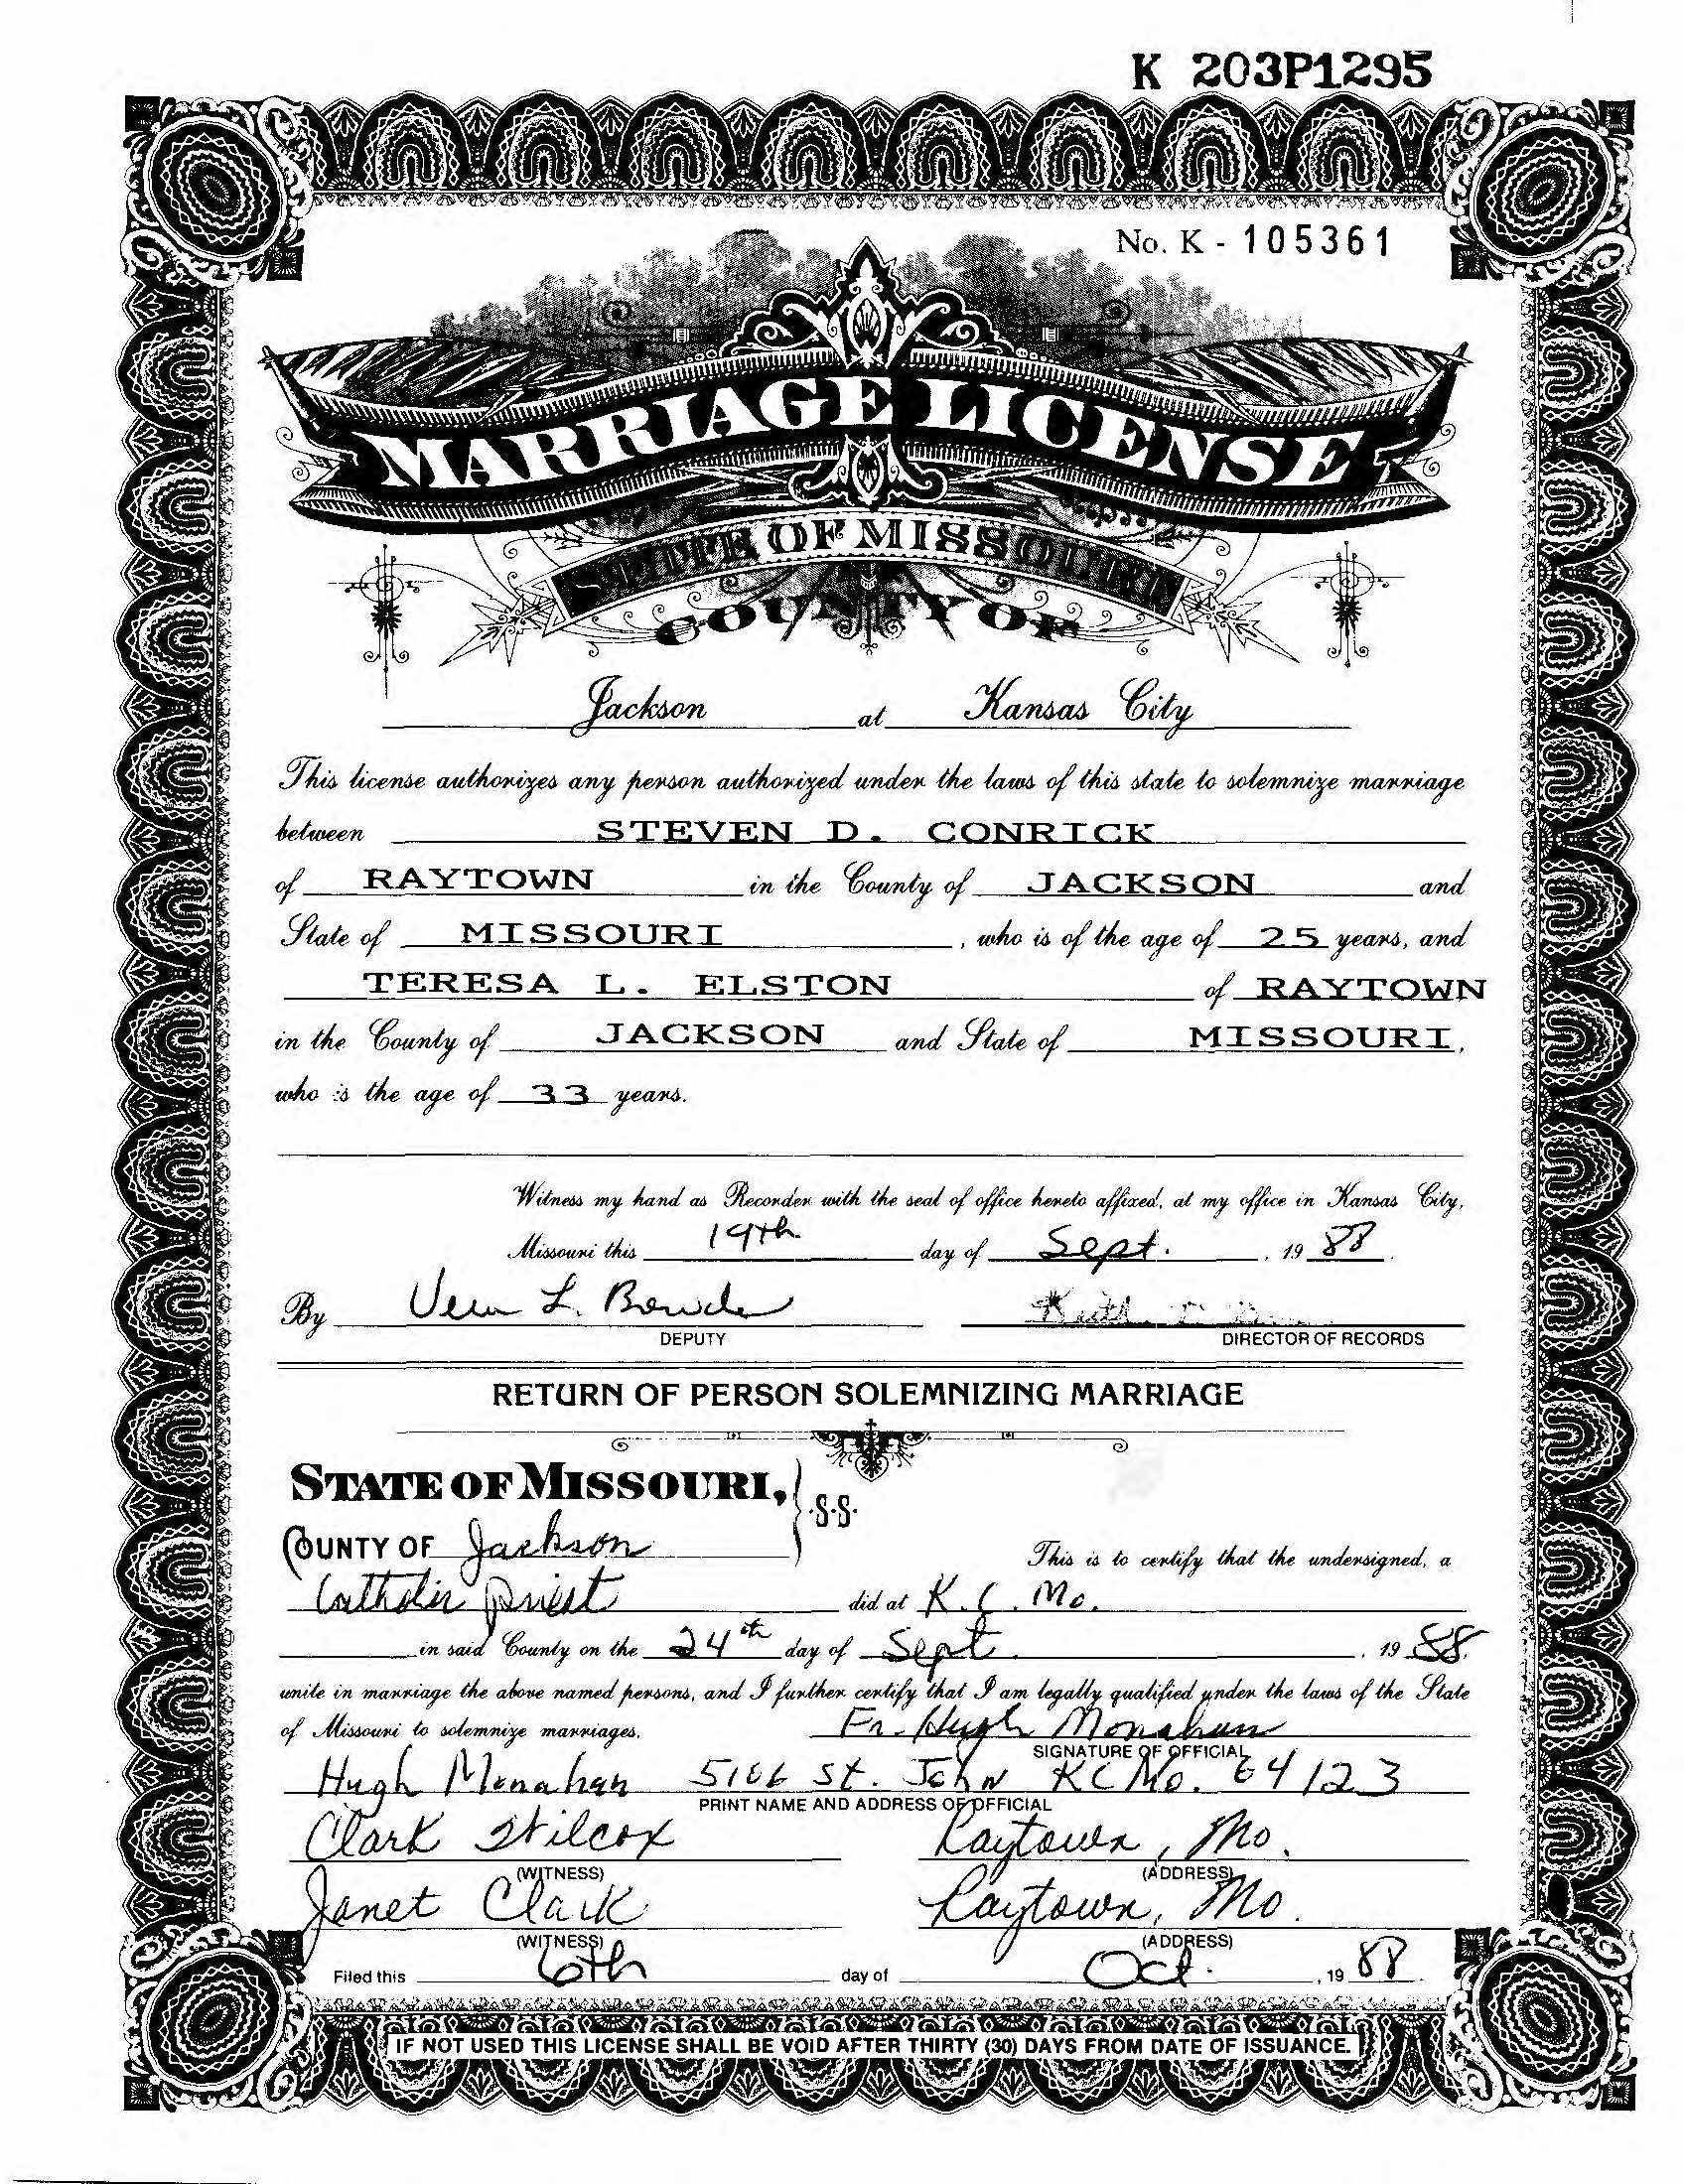 K 203P1295
No. K - 105361
MARRIAGE LICENSE
STATE OF MISSOURI
COUNTY OF
Jackson at Kansas City
This license authorizes any person authorized under the laws of this state to solemnize marriage
between STEVEN D. CONRICK
of RAYTOWN in the County of JACKSON and
State of MISSOURI, who is of the age of 25 years, and
TERESA L. ELSTON of RAYTOWN
in the County of JACKSON and State of MISSOURI,
who is the age of 33 years.
Witness my hand as Recorder with the seal of office hereto affixed, at my office in Kansas City,
Missouri this 19th day of Sept., 19 88.
By L.
DEPUTY DIRECTOR OF RECORDS
RETURN OF PERSON SOLEMNIZING MARRIAGE
STATE OF MISSOURI, } S.S.
COUNTY OF Jackson This is to certify that the undersigned, a
Catholic priest did at K.C. Mo.
in said County on the 24th day of Sept. , 19 88.
unite in marriage the above named persons, and I further certify that I am legally qualified under the laws of the State
of Missouri to solemnize marriages. Fr. Hugh Monahan
SIGNATURE OF OFFICIAL
Hugh Monahan St. John KC Mo. 64123
PRINT NAME AND ADDRESS OF OFFICIAL
Clark Wilcox Raytown, Mo.
(WITNESS) (ADDRESS)
Janet Clark Raytown, Mo.
(WITNESS) (ADDRESS)
Filed this 6th day of Oct. , 19 88
IF NOT USED THIS LICENSE SHALL BE VOID AFTER THIRTY (30) DAYS FROM DATE OF ISSUANCE.